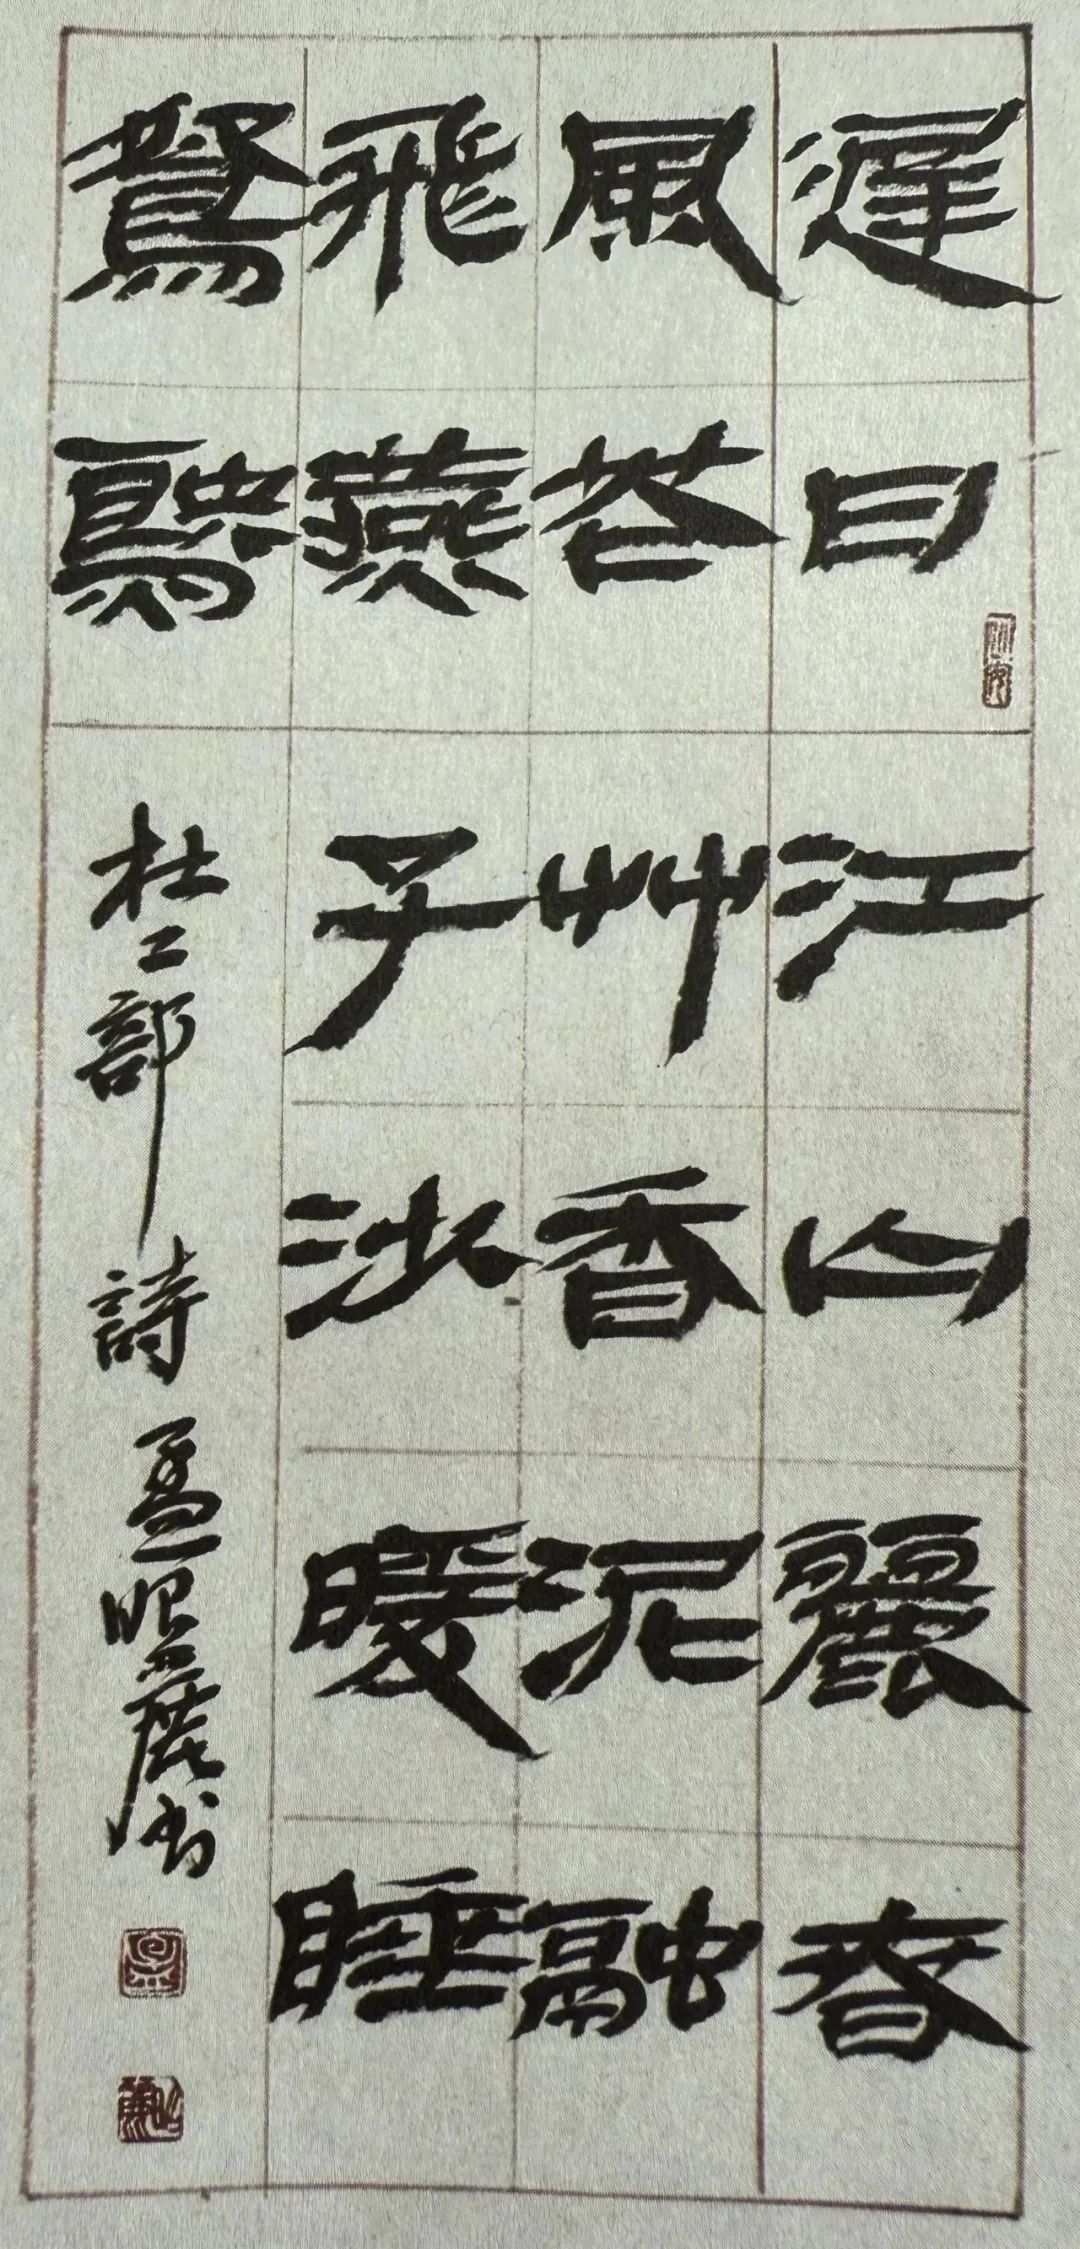 遲日江山麗春
風花艸香泥融
飛燕子沙暖睡
鴛鴦
杜工部詩 孟書